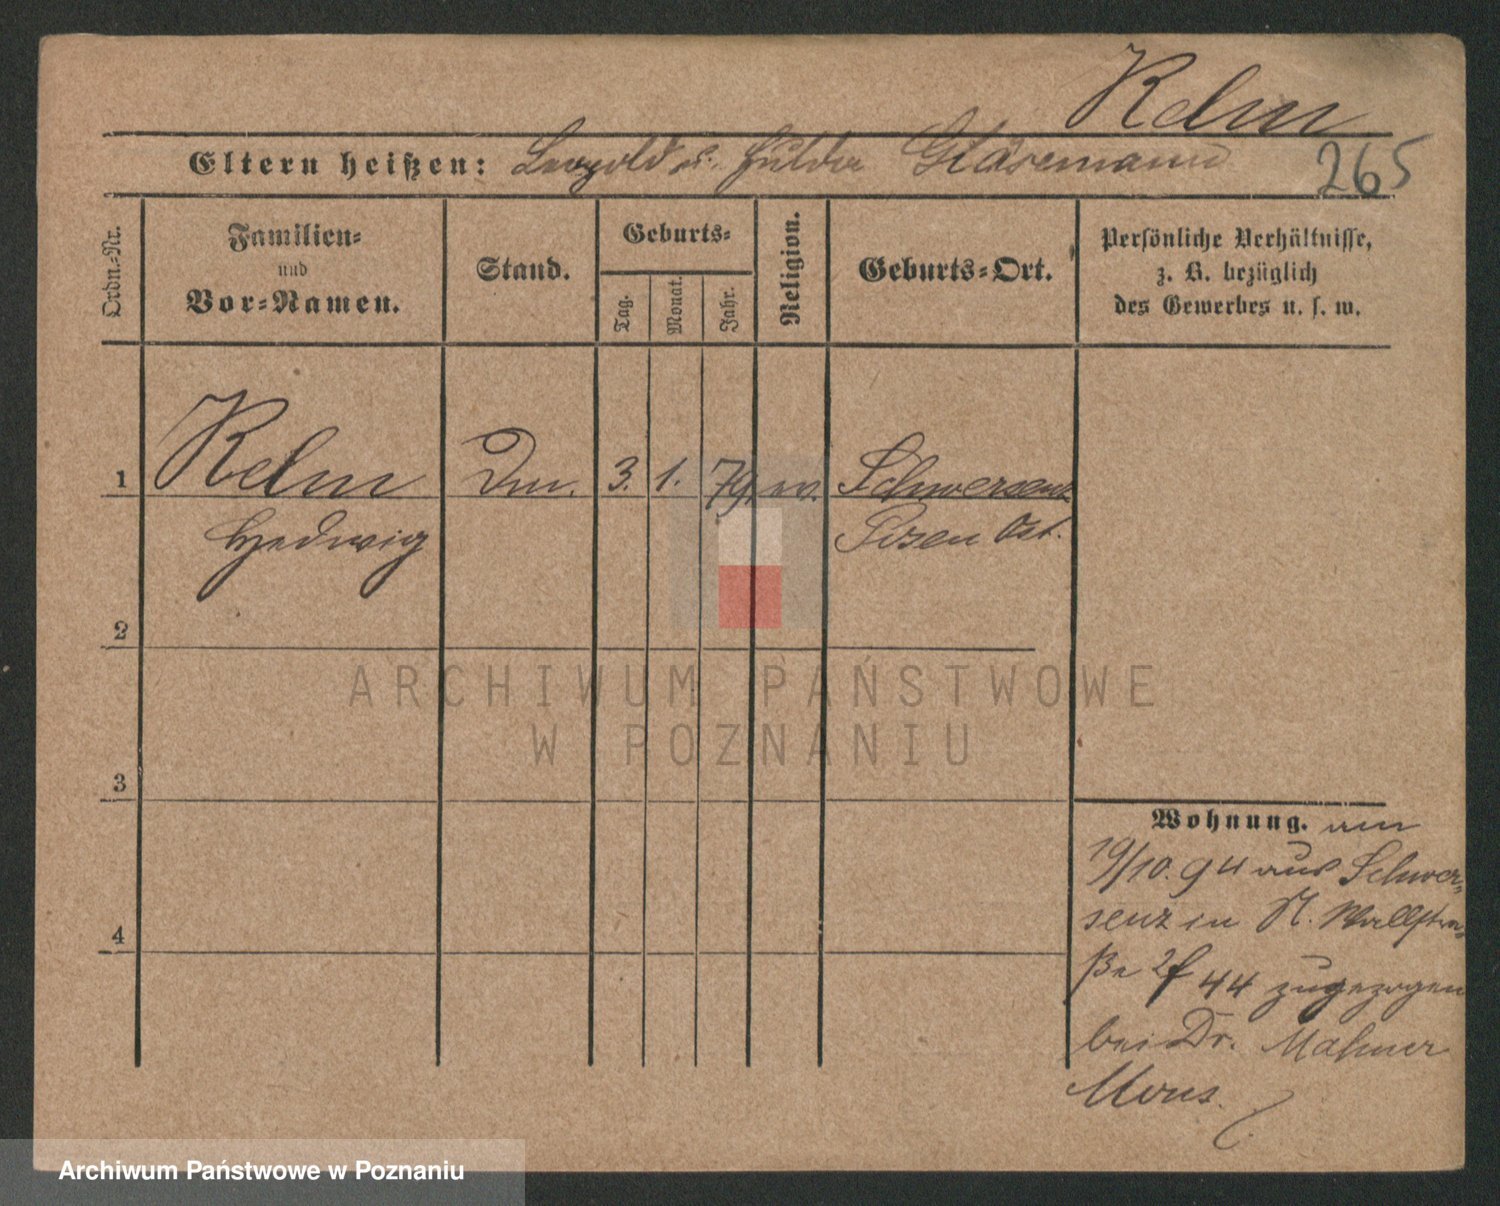 Kelm
Eltern heißen: Leopold u. Hulda Gläsemann
265
Ordn.-Nr.
Familien-
und
Vor-Namen.
Stand.
Geburts-
Tag.
Monat.
Jahr.
Religion.
Geburts-Ort.
Persönliche Verhältnisse,
z. B. bezüglich
des Gewerbes u. s. w.
1 Kelm 3. 1. 79. ev. Schwersenz
Hedwig Posen Ost.
2
3
4
Wohnung. am
19/10. 94 aus Schwer-
senz in St. Wallstra-
ße 44 zugezogen
bei Dr.
ARCHIWUM PAŃSTWOWE
W POZNANIU
Archiwum Państwowe w Poznaniu